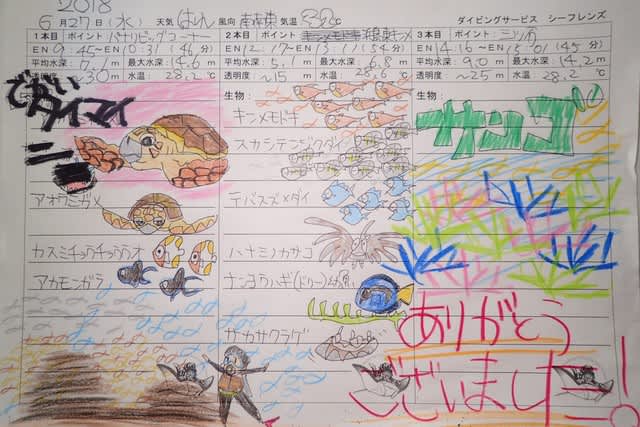 2018
6月27日(水) 天気 はれ 風向 南南東 気温 32℃ ダイビングサービス シーフレンズ
1本目 ポイント パナリビッグコーナー
EN 9:45〜10:31 (46分)
平均水深: 7.6m 最大水深: 14.6m
透明度 〜30m 水温: 28.2℃
でかい
タイマイ
アオウミガメ
カスミチョウチョウウオ
アカモンガラ
2本目 ポイント
EN 12:17〜13:11 (54分)
平均水深: 5.1m 最大水深: 6.8m
透明度 〜15m 水温: 28.2℃
生物:
キンメモドキ
スカシテンジクダイ
デバスズメダイ
ハナミノカサゴ
ナンヨウハギ(ドリー)
サカサクラゲ
3本目 ポイント:
EN 14:16〜15:01 (45分)
平均水深: 9.0m 最大水深: 14.2m
透明度 〜25m 水温: 28.2℃
生物:
サンゴ
ありがとう
ございました!